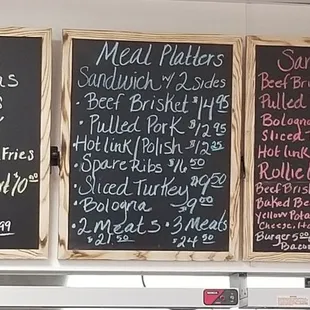 Fries
10.00
99
Meal Platters
Sandwich w/ 2 Sides
• Beef Brisket $14.95
• Pulled Pork $12.95
Hot link/Polish $12.95
• Spare Ribs $16.50
• Sliced Turkey $9.50
• Bologna $9.00
• 2 Meats • 3 Meats
$21.50 $24.50
Beef Bri
Pulled
Bologna
Sliced
Hot link
Beef Bris
Baked Be
Yellow Pota
Cheese,
Burger 5.00
Bacon